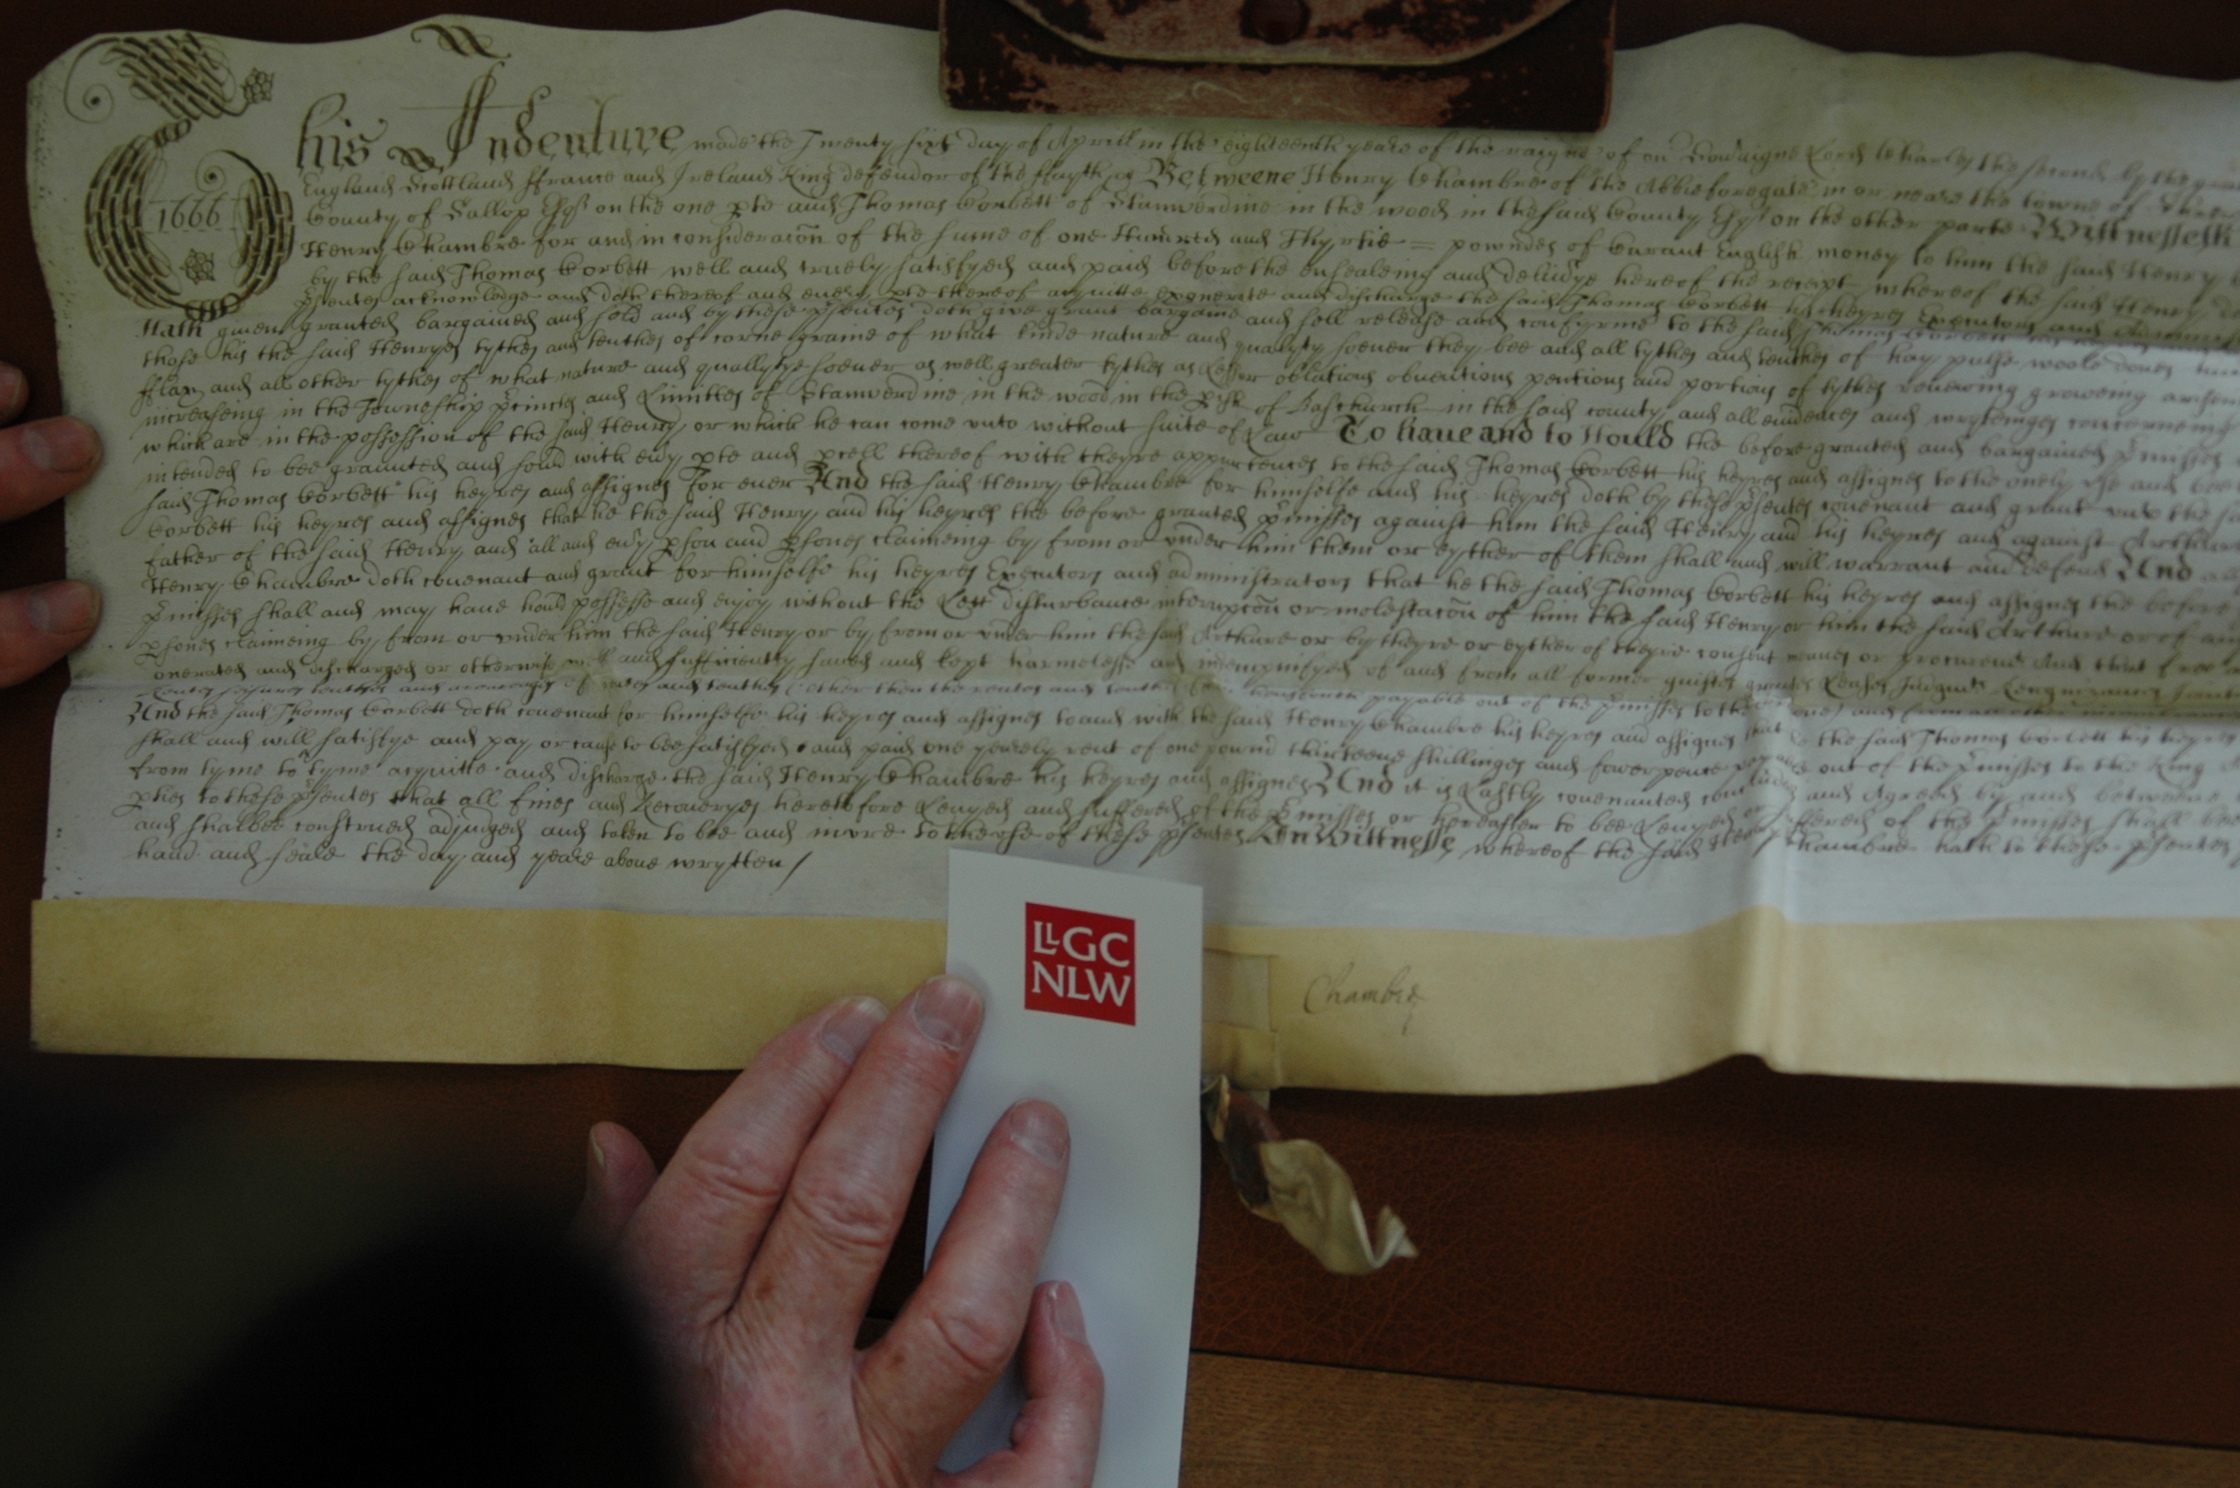 This Indenture made the Twenty sixt day of Aprill in the eighteenth yeare of the raigne of our Soveraigne Lord Charles the second by the
1666
England Scottland ffrance and Ireland King defendor of the ffayth &c Betweene Henry Chambre of the Abbieforegate in or neare the towne of
County of Sallop Esqr on the one pte and Thomas Corbett of Stanwerdine in the wood in the said County Esqr on the other parte Wittnesseth
Henry Chambre for and in consideracōn of the sume of one Hundred and Thyrtie = powndes of Curant English money to him the said Henry
by the said Thomas Corbett well and truely satisfyed and paid before the ensealeing and delivye hereof the receipt whereof the said Henry
psentes acknowledge and doth thereof and every pte thereof acquitte exonerate and discharge the said Thomas Corbett his heyres Executors and
Hath given granted bargained and sold and by these psentes doth give grant bargaine and sell release and confyrme to the said Thomas Corbett
those his the said Henryes tythes and tenthes of corne graine of what kinde nature and qualyty soever they bee and all tythes and tenthes of hay pulse woole
fflax and all other tythes of what nature and quallytye soever as well greater tythes as Lesser oblations obventions pentions and portions of tythes renewing groweing
increaseing in the Towneship pcincts and Limittes of Stanwerdine in the wood in the pish of Baschurch in the said county and all evidences and wrytinges concerneing
which are in the possession of the said Henry or which he can come unto without suite of Law To have and to Hould the before granted and bargained pmisses
intended to bee graunted and sould with evy pte and pcell thereof with theyre appurtences to the said Thomas Corbett his heyres and assignes to the onely use and
said Thomas Corbett his heyres and assignes for ever And the said Henry Chambre for himselfe and his heyres doth by these psentes covenant and grant
Corbett his heyres and assignes that he the said Henry and his heyres the before granted pmisses against him the said Henry and his heyres and against Arthure
father of the said Henry and all and evy pson and psones claimeing by from or under him them or eyther of them shall and will warrant and defend And
Henry Chambre doth covenant and grant for himselfe his heyres Executors and administrators that he the said Thomas Corbett his heyres and assignes the before
pmisses shall and may have hould possesse and enjoy without the Lett disturbance interupcōn or molestacōn of him the said Henry or him the said Arthure or of
psones claimeing by from or under him the said Henry or by from or under him the said Arthure or by theyre or eyther of theyre consent meanes or procurement And that free
onerated and discharged or otherwise well and sufficiently saved and kept harmelesse and indempnifyed of and from all former guiftes grantes Leases
and tenthes other then the rentes and tenthes payable out of the pmisses to the
And the said Thomas Corbett doth covenant for himselfe his heyres and assignes to and with the said Henry Chambre his heyres and assignes that he the said Thomas Corbett his heyres
shall and will satisfye and pay or cause to bee satisfyed and paid one yearely rent of one pownd thirteene shillinges and fowerpence payable out of the pmisses to the King
from tyme to tyme acquitte and discharge the said Henry Chambre his heyres and assignes And it is Lastly covenanted concluded and Agreed by and betweene
pties to these psentes that all fines and Recoveryes heretofore Levyed and suffered of the pmisses or hereafter to bee Levyed or suffered of the pmisses shall bee
and shalbee construed adjudged and taken to bee and inure to the use of these psentes In Wittnesse whereof the said Henry Chambre hath to these psentes
hand and seale the day and yeare above wrytten /
LLGC
NLW
Chambre